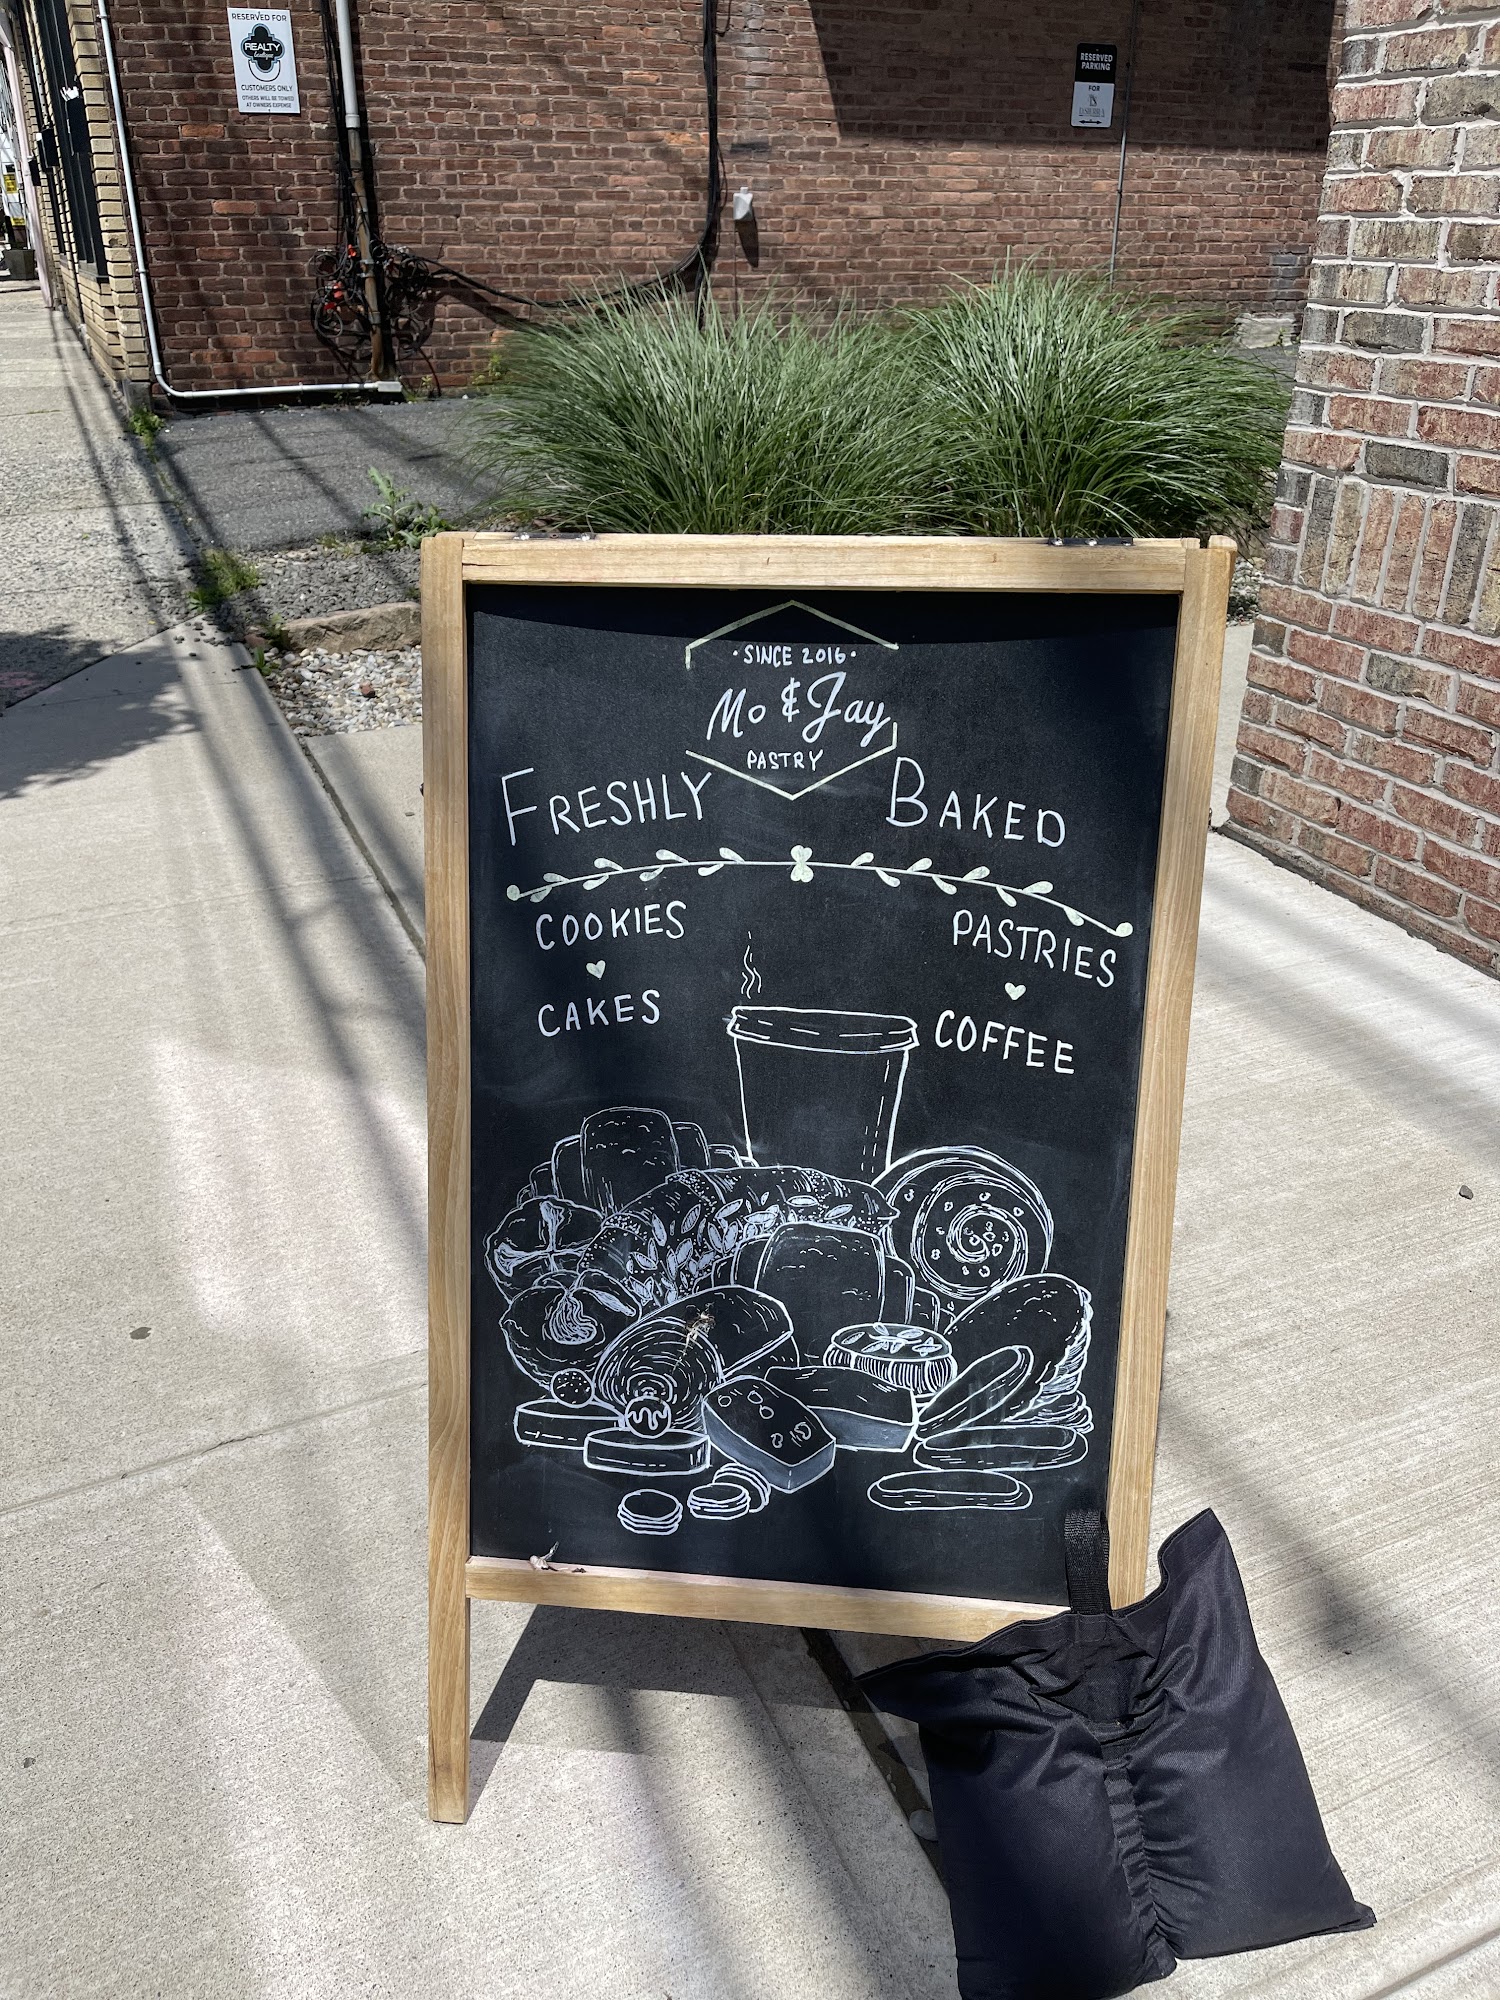 RESERVED FOR
REALTY
boutique
CUSTOMERS ONLY
OTHERS WILL BE TOWED
AT OWNERS EXPENSE
RESERVED
PARKING
FOR
· SINCE 2016 ·
Mo & Jay
PASTRY
FRESHLY BAKED
COOKIES
CAKES
PASTRIES
COFFEE